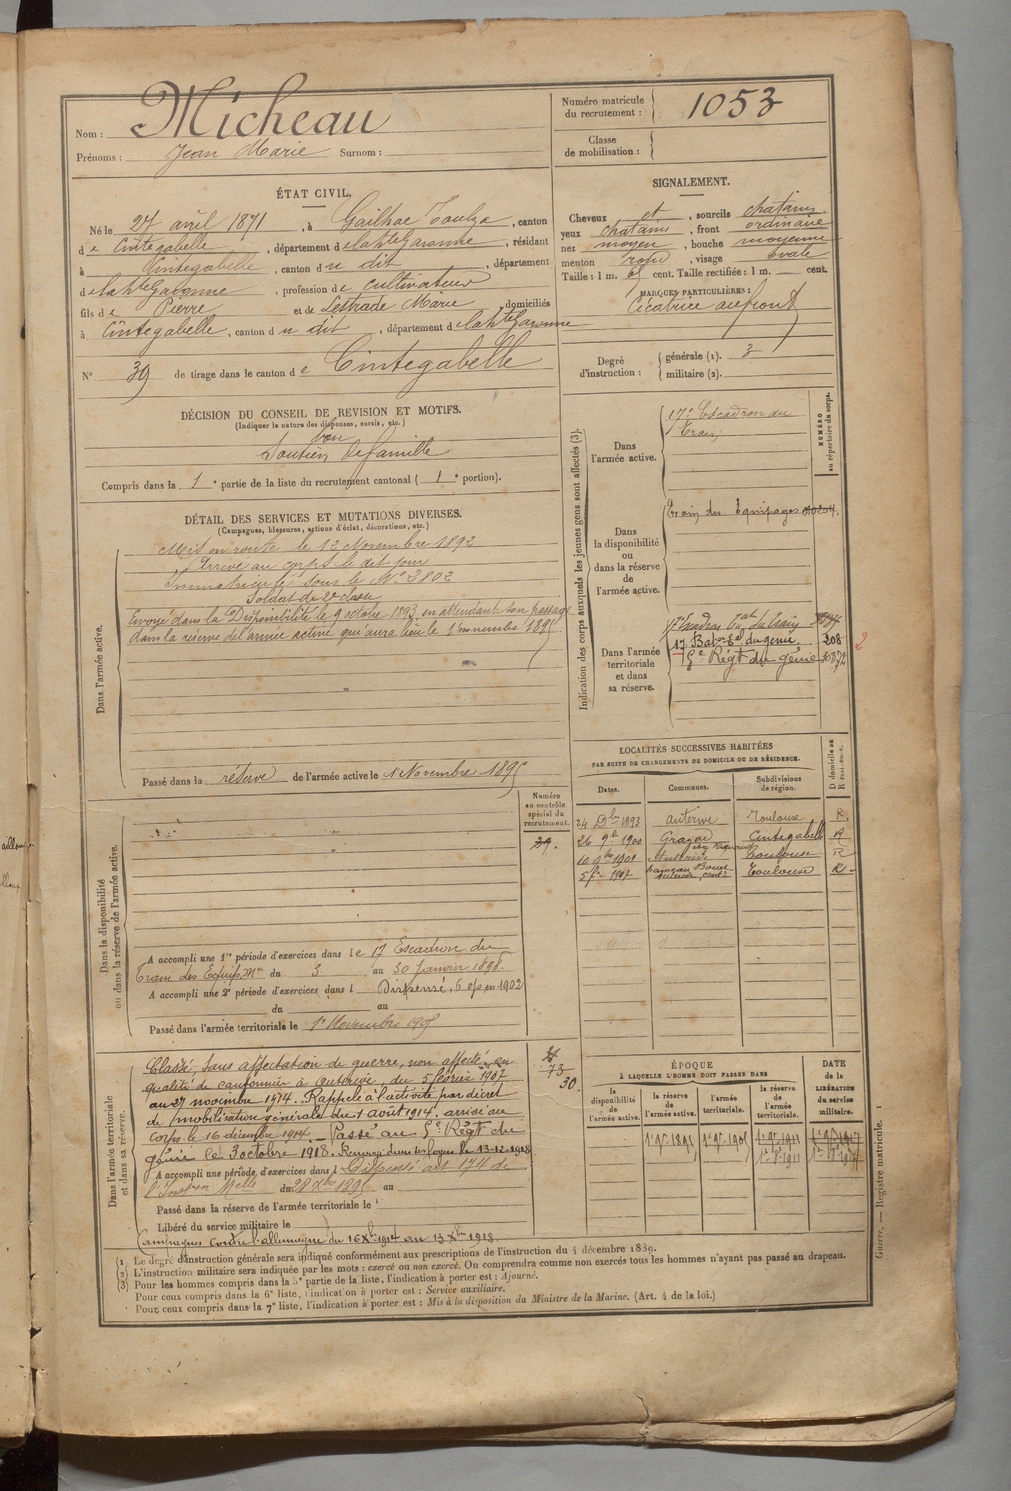 Nom : Micheau
Prénoms : Jean Marie Surnom :
Numéro matricule du recrutement : 1053
Classe de mobilisation :
ÉTAT CIVIL.
Né le 27 avril 1871, à Gailhac Toulza, canton
de Cintegabelle, département de la hte Garonne, résidant
à Cintegabelle, canton du dit, département
de la hte Garonne, profession de cultivateur
fils de Pierre et de Lestrade Marie, domiciliés
à Cintegabelle, canton du dit, département de la hte Garonne
N° 39 de tirage dans le canton de Cintegabelle
SIGNALEMENT.
Cheveux et, sourcils chatains
yeux chatains, front ordinaire
nez moyen, bouche moyenne
menton rond, visage ovale
Taille : 1 m. cent. Taille rectifiée : 1 m. cent.
MARQUES PARTICULIÈRES :
Cicatrice au front
Degré d'instruction : générale (1). 3
militaire (2).
DÉCISION DU CONSEIL DE REVISION ET MOTIFS.
(Indiquer la nature des dispenses, sursis, etc.)
bon
Soutien de famille
Compris dans la 1e partie de la liste du recrutement cantonal (1e portion).
DÉTAIL DES SERVICES ET MUTATIONS DIVERSES.
(Campagnes, blessures, actions d'éclat, décorations, etc.)
Dans l'armée active.
Mis en route le 12 Novembre 1892
Arrivé au corps le dit jour
Immatriculé sous le No 3802
Soldat de 2e classe
Envoyé dans la Disponibilité le 9 octobre 1893 en attendant son passage
dans la réserve de l'armée active qui aura lieu le 1er novembre 1895
Passé dans la réserve de l'armée active le 1 Novembre 1895
Indication des corps auxquels les jeunes gens sont affectés (3).
NUMÉRO au répertoire du corps.
Dans l'armée active.
17e Escadron du
Train
Dans la disponibilité ou dans la réserve de l'armée active.
Train des Equipages
Dans l'armée territoriale et dans sa réserve.
17 Escadron du Train
17 Baton Eal du génie 208
Régt du génie
2
LOCALITÉS SUCCESSIVES HABITÉES
PAR SUITE DE CHANGEMENTS DE DOMICILE OU DE RÉSIDENCE.
Dates. Communes. Subdivisions de région. D domicile ou R résidence.
24 Dbre 1893 auterive Toulouse R.
26 9b 1900 Grazac Cintegabelle R
1901 Auterive Toulouse R
5 fr 1907 Toulouse R
Dans la disponibilité ou dans la réserve de l'armée active.
Numéro au contrôle spécial du recrutement.
39.
A accompli une 1re période d'exercices dans le 17 Escadron du
Train des Equip. Mres du 3 au 30 Janvier 1898.
A accompli une 2e période d'exercices dans l Dispensé, 6 en 1902
du au
Passé dans l'armée territoriale le 1er Novembre 1905
Dans l'armée territoriale et dans sa réserve.
Classé, sans affectation de guerre, non affecté, en
qualité de cantonnier à auterive, du 5 février 1907
au 27 novembre 1914. Rappelé à l'activité par décret
de mobilisation générale du 1 août 1914. arrivé au
corps le 16 décembre 1914. Passé au Régt du
génie le 3 octobre 1918. Renvoyé dans ses foyers le 13-12-1918
A accompli une période d'exercices dans l Dispensé art 174 de
l'Inston Melle du 28 Xbre 1895 au
Passé dans la réserve de l'armée territoriale le
Libéré du service militaire le
Campagnes contre l'allemagne du 16 Xbre 1914 au 13 Xbre 1918.
73
30
ÉPOQUE
À LAQUELLE L'HOMME DOIT PASSER DANS
la disponibilité de l'armée active. la réserve de l'armée active. l'armée territoriale. la réserve de l'armée territoriale.
DATE de la LIBÉRATION du service militaire.
1er 9bre 1895 1er 9bre 1905 1er 9bre 1911 1er 9bre 1917
Guerre. — Registre matricule. 1
(1) Le degré d'instruction générale sera indiqué conformément aux prescriptions de l'instruction du 4 décembre 1889.
(2) L'instruction militaire sera indiquée par les mots : exercé ou non exercé. On comprendra comme non exercés tous les hommes n'ayant pas passé au drapeau.
(3) Pour les hommes compris dans la 5e partie de la liste, l'indication à porter est : Ajourné.
Pour ceux compris dans la 6e liste, l'indication à porter est : Service auxiliaire.
Pour ceux compris dans la 7e liste, l'indication à porter est : Mis à la disposition du Ministre de la Marine. (Art. 4 de la loi.)